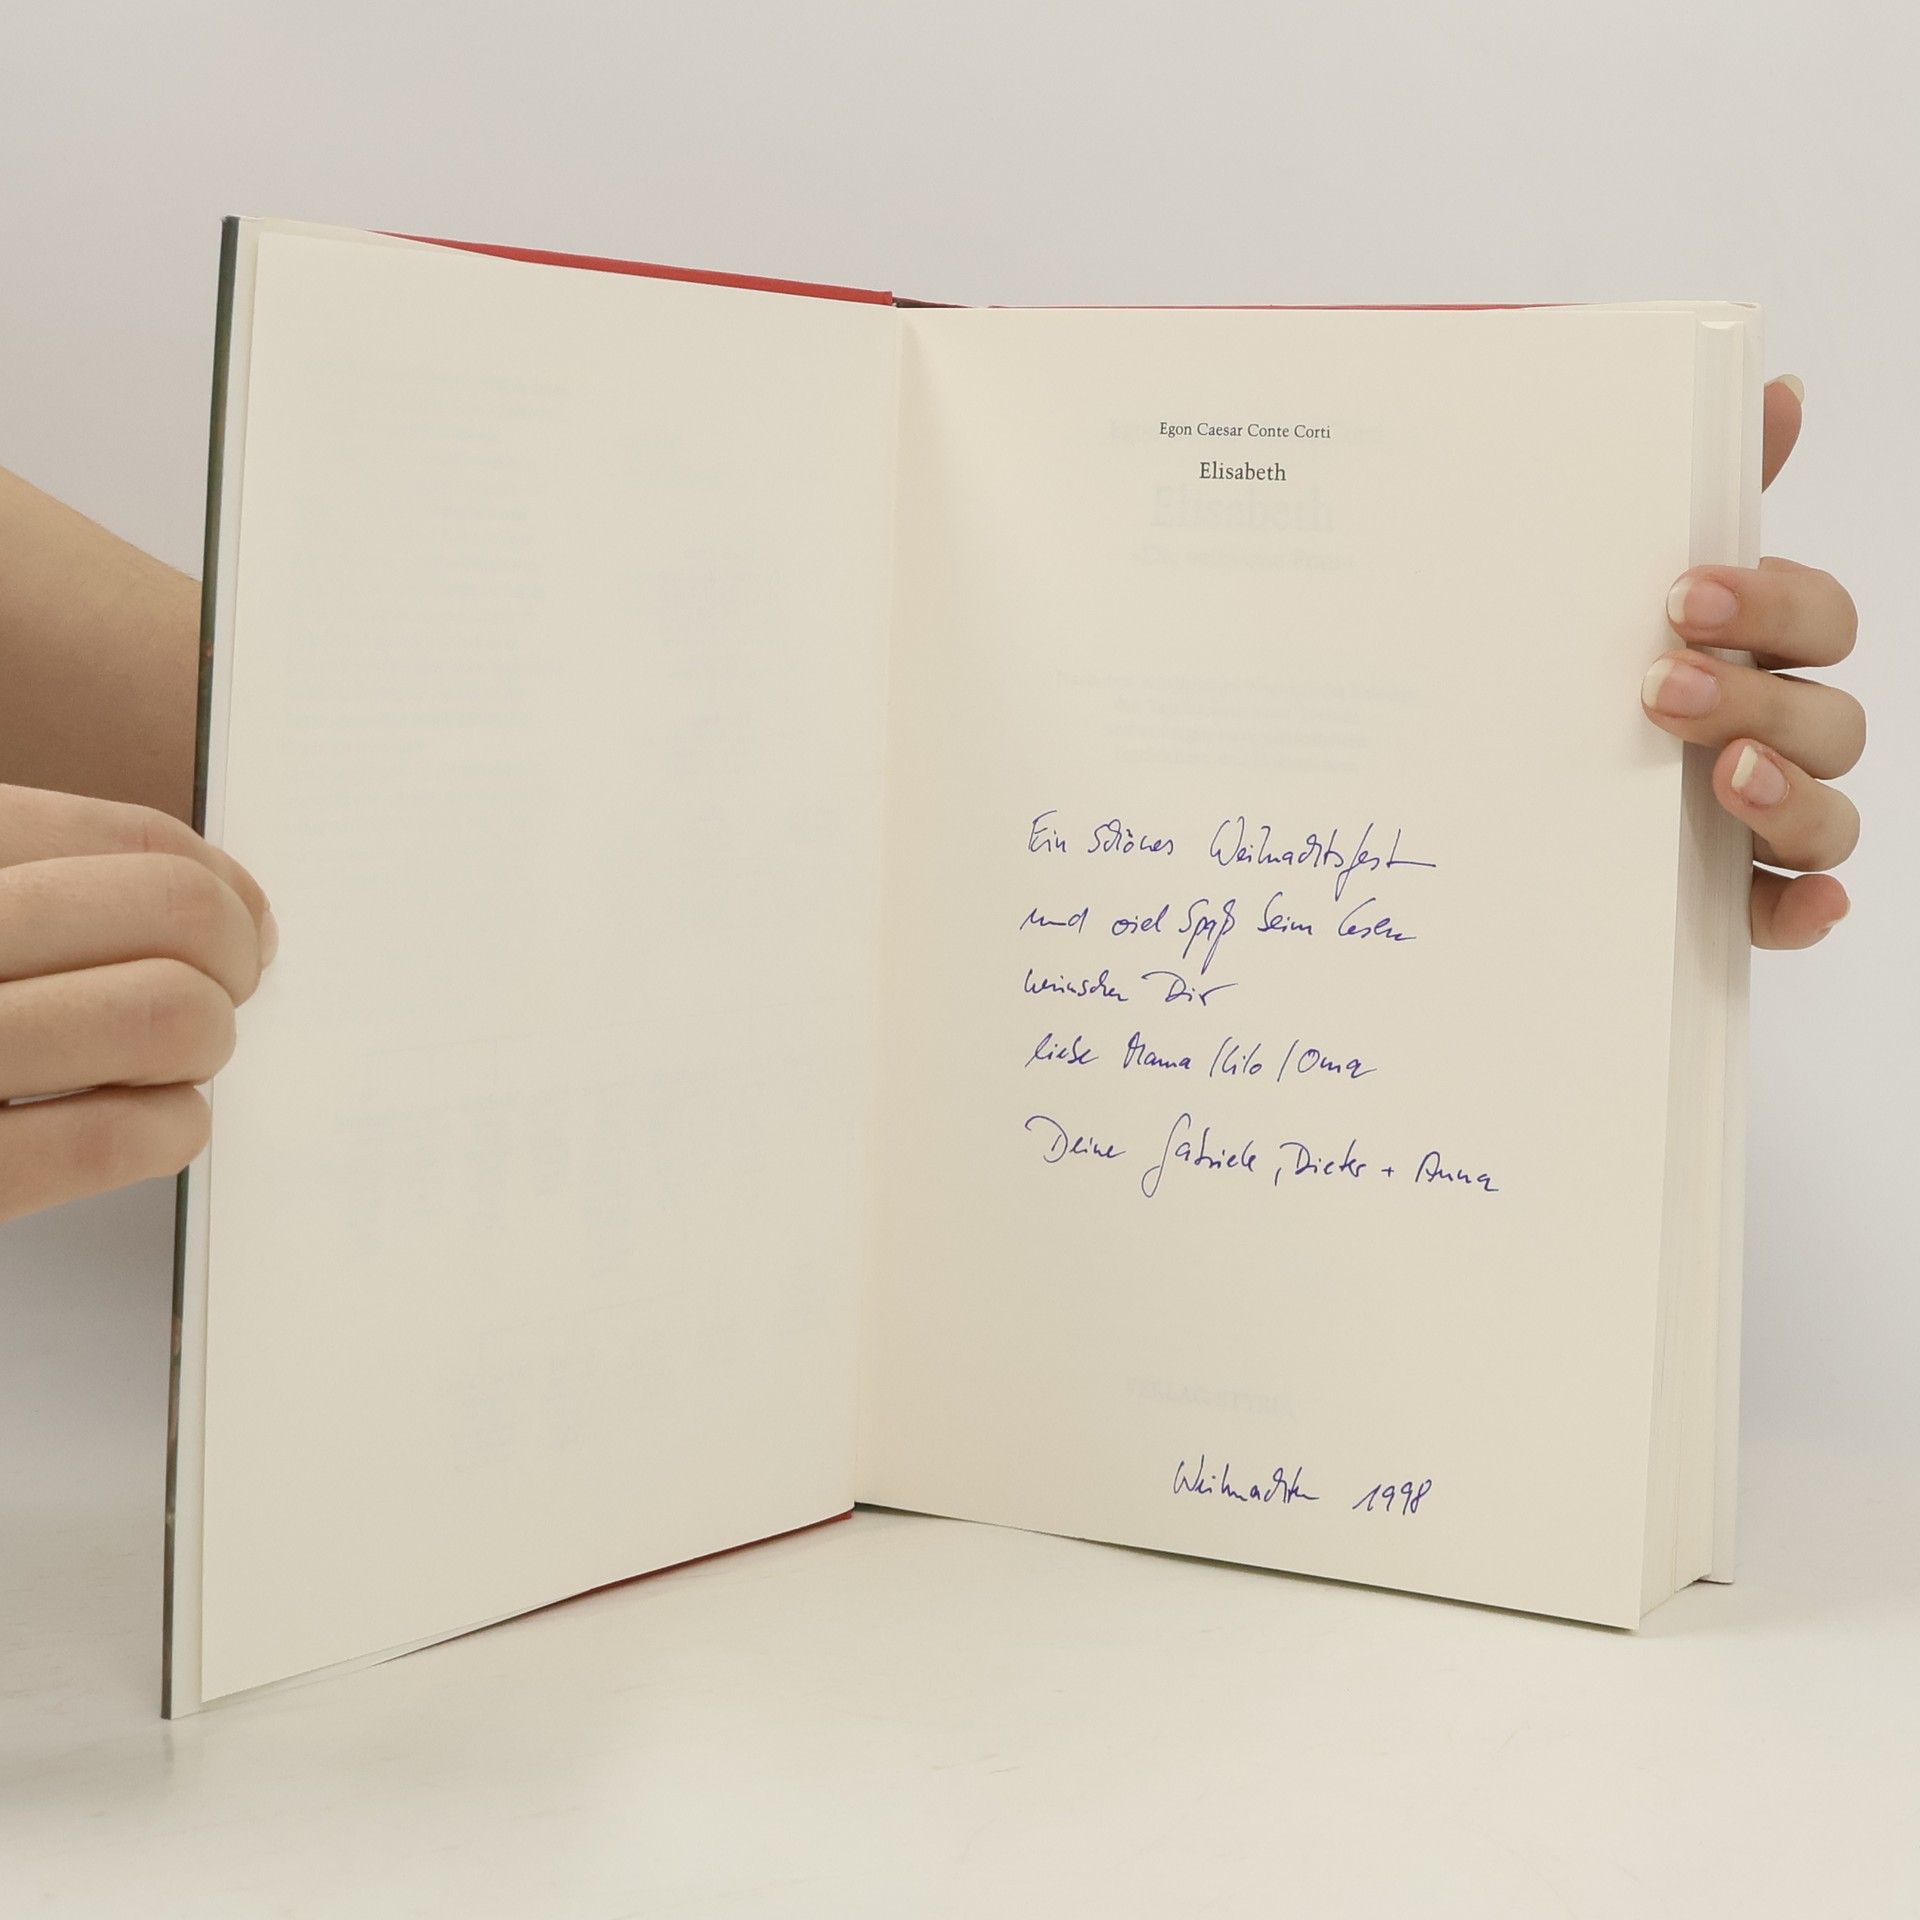 Egon Caesar Conte Corti
Elisabeth
Elisabeth
Ein schönes Weihnachtsfest
und viel Spaß beim Lesen
wünschen Dir
liebe Mama / Lilo / Oma
Deine Gabriele, Dieter + Anna
Weihnachten 1998